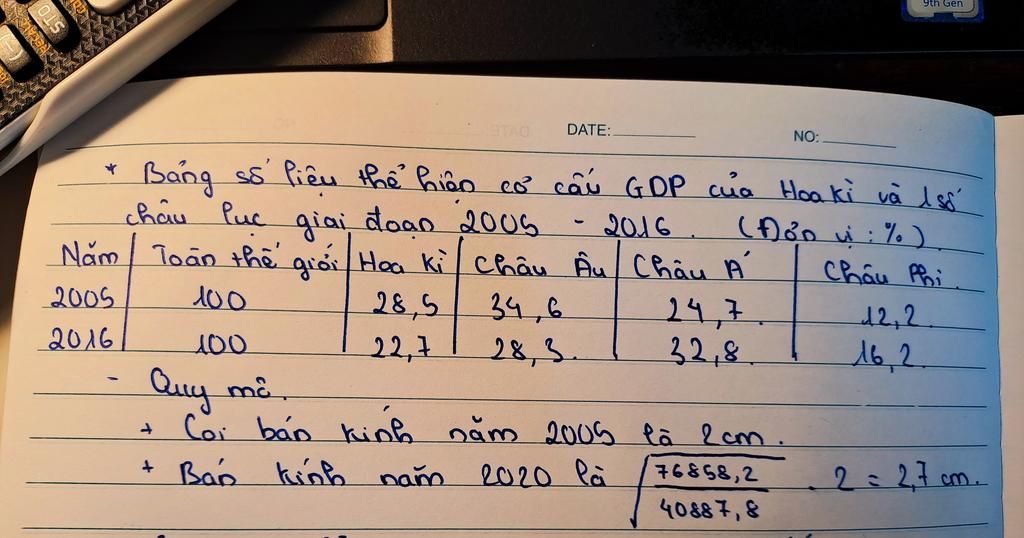 9th Gen
STO
DATE:
NO:
* Bảng số liệu thể hiện cơ cấu GDP của Hoa Kì và 1 số
châu lục giai đoạn 2005 - 2016. (Đơn vị : %)
Năm Toàn thế giới Hoa Kì Châu Âu Châu Á Châu Phi.
2005 100 28,5 34,6 24,7. 12,2.
2016 100 22,7 28,3. 32,8. 16,2.
- Quy mô.
+ Coi bán kính năm 2005 là 2cm.
+ Bán kính năm 2020 là √(76858,2 / 40887,8) . 2 = 2,7 cm.